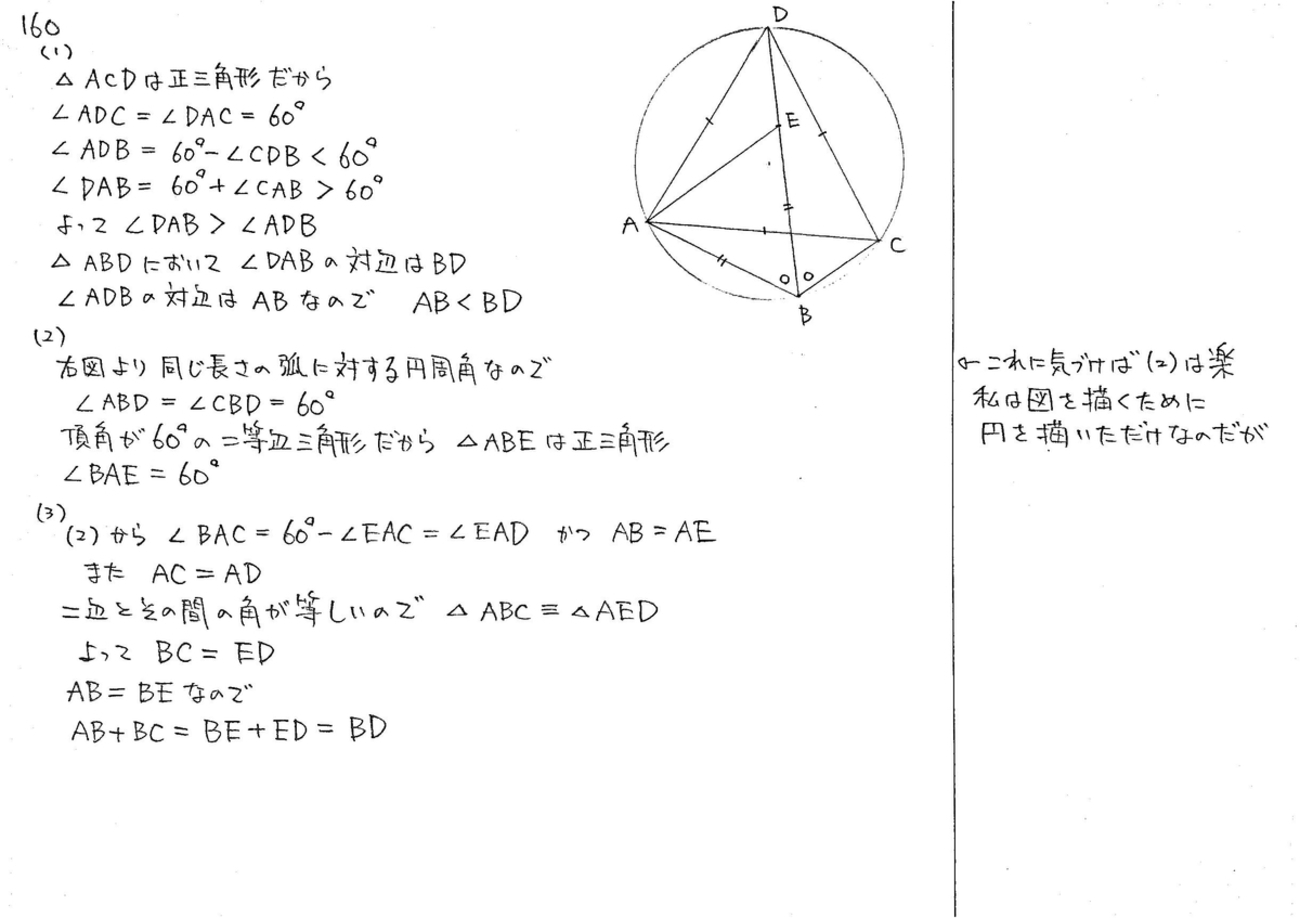 160
(1)
△ACDは正三角形だから
∠ADC = ∠DAC = 60°
∠ADB = 60° - ∠CDB < 60°
∠DAB = 60° + ∠CAB > 60°
よって ∠DAB > ∠ADB
△ABDにおいて ∠DABの対辺はBD
∠ADBの対辺は ABなので AB < BD
(2)
右図より 同じ長さの弧に対する円周角なので
∠ABD = ∠CBD = 60°
頂角が60°の二等辺三角形だから △ABEは正三角形
∠BAE = 60°
(3)
(2)から ∠BAC = 60° - ∠EAC = ∠EAD かつ AB = AE
また AC = AD
二辺とその間の角が等しいので △ABC ≡ △AED
よって BC = ED
AB = BEなので
AB + BC = BE + ED = BD
D
E
A
C
B
←これに気づけば(2)は楽
私は図を描くために
円を描いただけなのだが